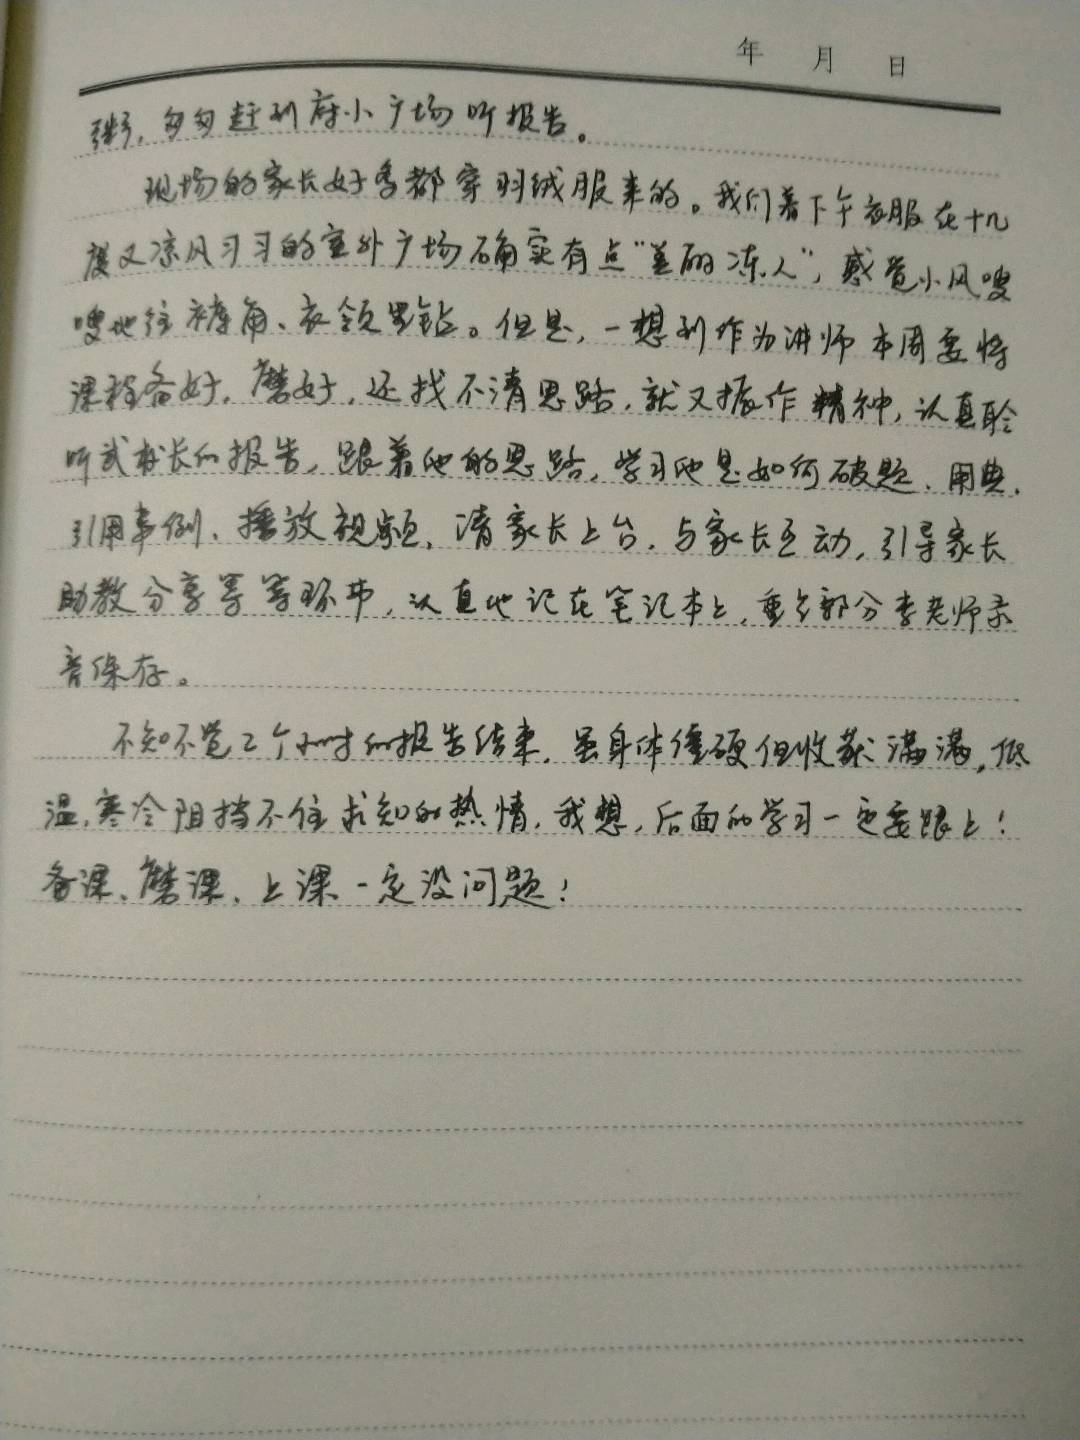 年 月 日
粥，匆匆赶到府小广场听报告。
现场的家长好多都穿羽绒服来的。我们着下午衣服在十几
度又凉风习习的室外广场确实有点“美丽冻人”，感觉小风嗖
嗖地往裤角、衣领里钻。但是，一想到作为讲师本周要将
课程备好，磨好，还找不清思路，就又振作精神，认真聆
听武校长的报告，跟着他的思路，学习他是如何破题、用典、
引用事例、播放视频，请家长上台，与家长互动，引导家长
助教分享等等环节，认真地记在笔记本上，重点部分李老师录
音保存。
不知不觉2个小时的报告结束，虽身体僵硬但收获满满，低
温，寒冷阻挡不住求知的热情，我想，后面的学习一定要跟上！
备课、磨课、上课一定没问题！